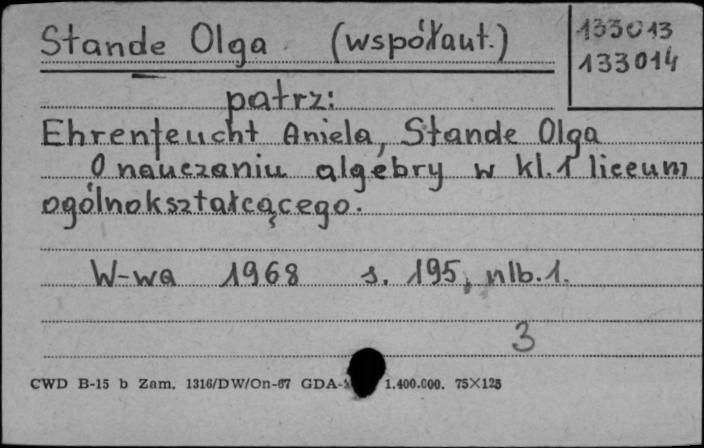 Stande Olga (współaut.)
133013
133014
patrz:
Ehrenfeucht Aniela, Stande Olga
O nauczaniu algebry w kl. 1 liceum
ogólnokształcącego.
W-wa 1968 s. 195, nlb. 1.
3
CWD B-15 b Zam. 1316/DW/On-67 GDA- 1.400.000. 75×125